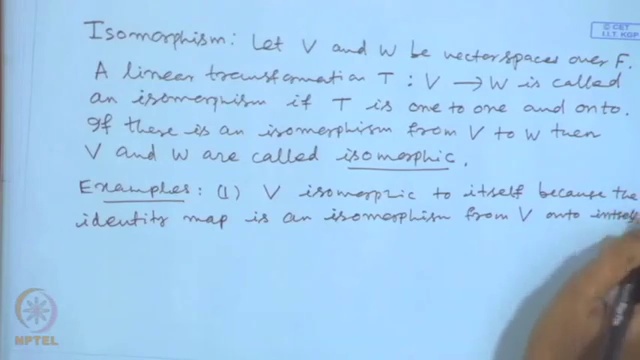 © CET
I.I.T. KGP
Isomorphism: Let V and W be vector spaces over F.
A linear transformation T : V → W is called
an isomorphism if T is one to one and onto.
If there is an isomorphism from V to W then
V and W are called isomorphic.
Examples: (1) V isomorphic to itself because the
identity map is an isomorphism from V onto intself
NPTEL